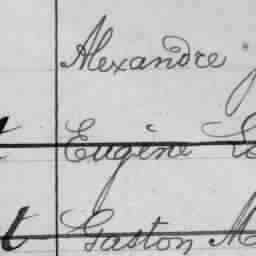 Alexandre
t Eugène
t Gaston M